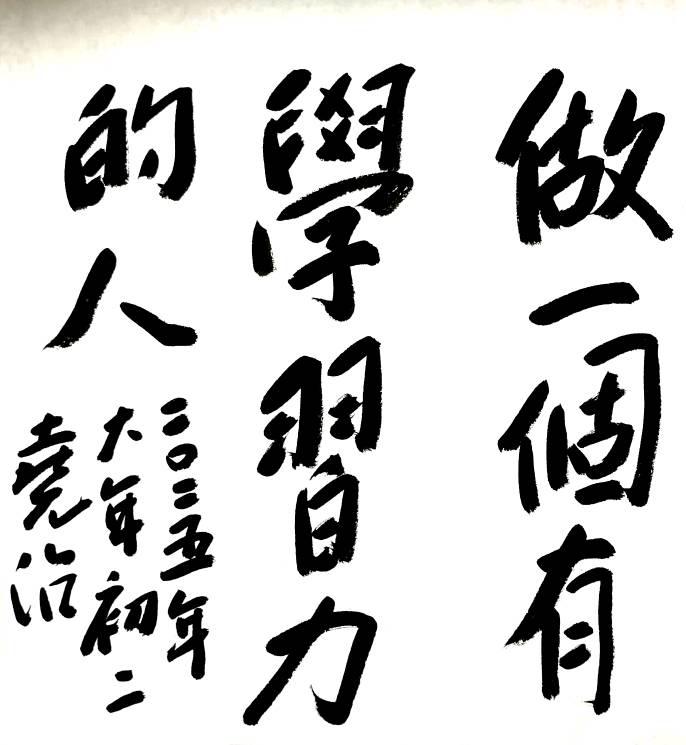 做一個有
學習力
的人
二〇二五年
大年初二
堯治